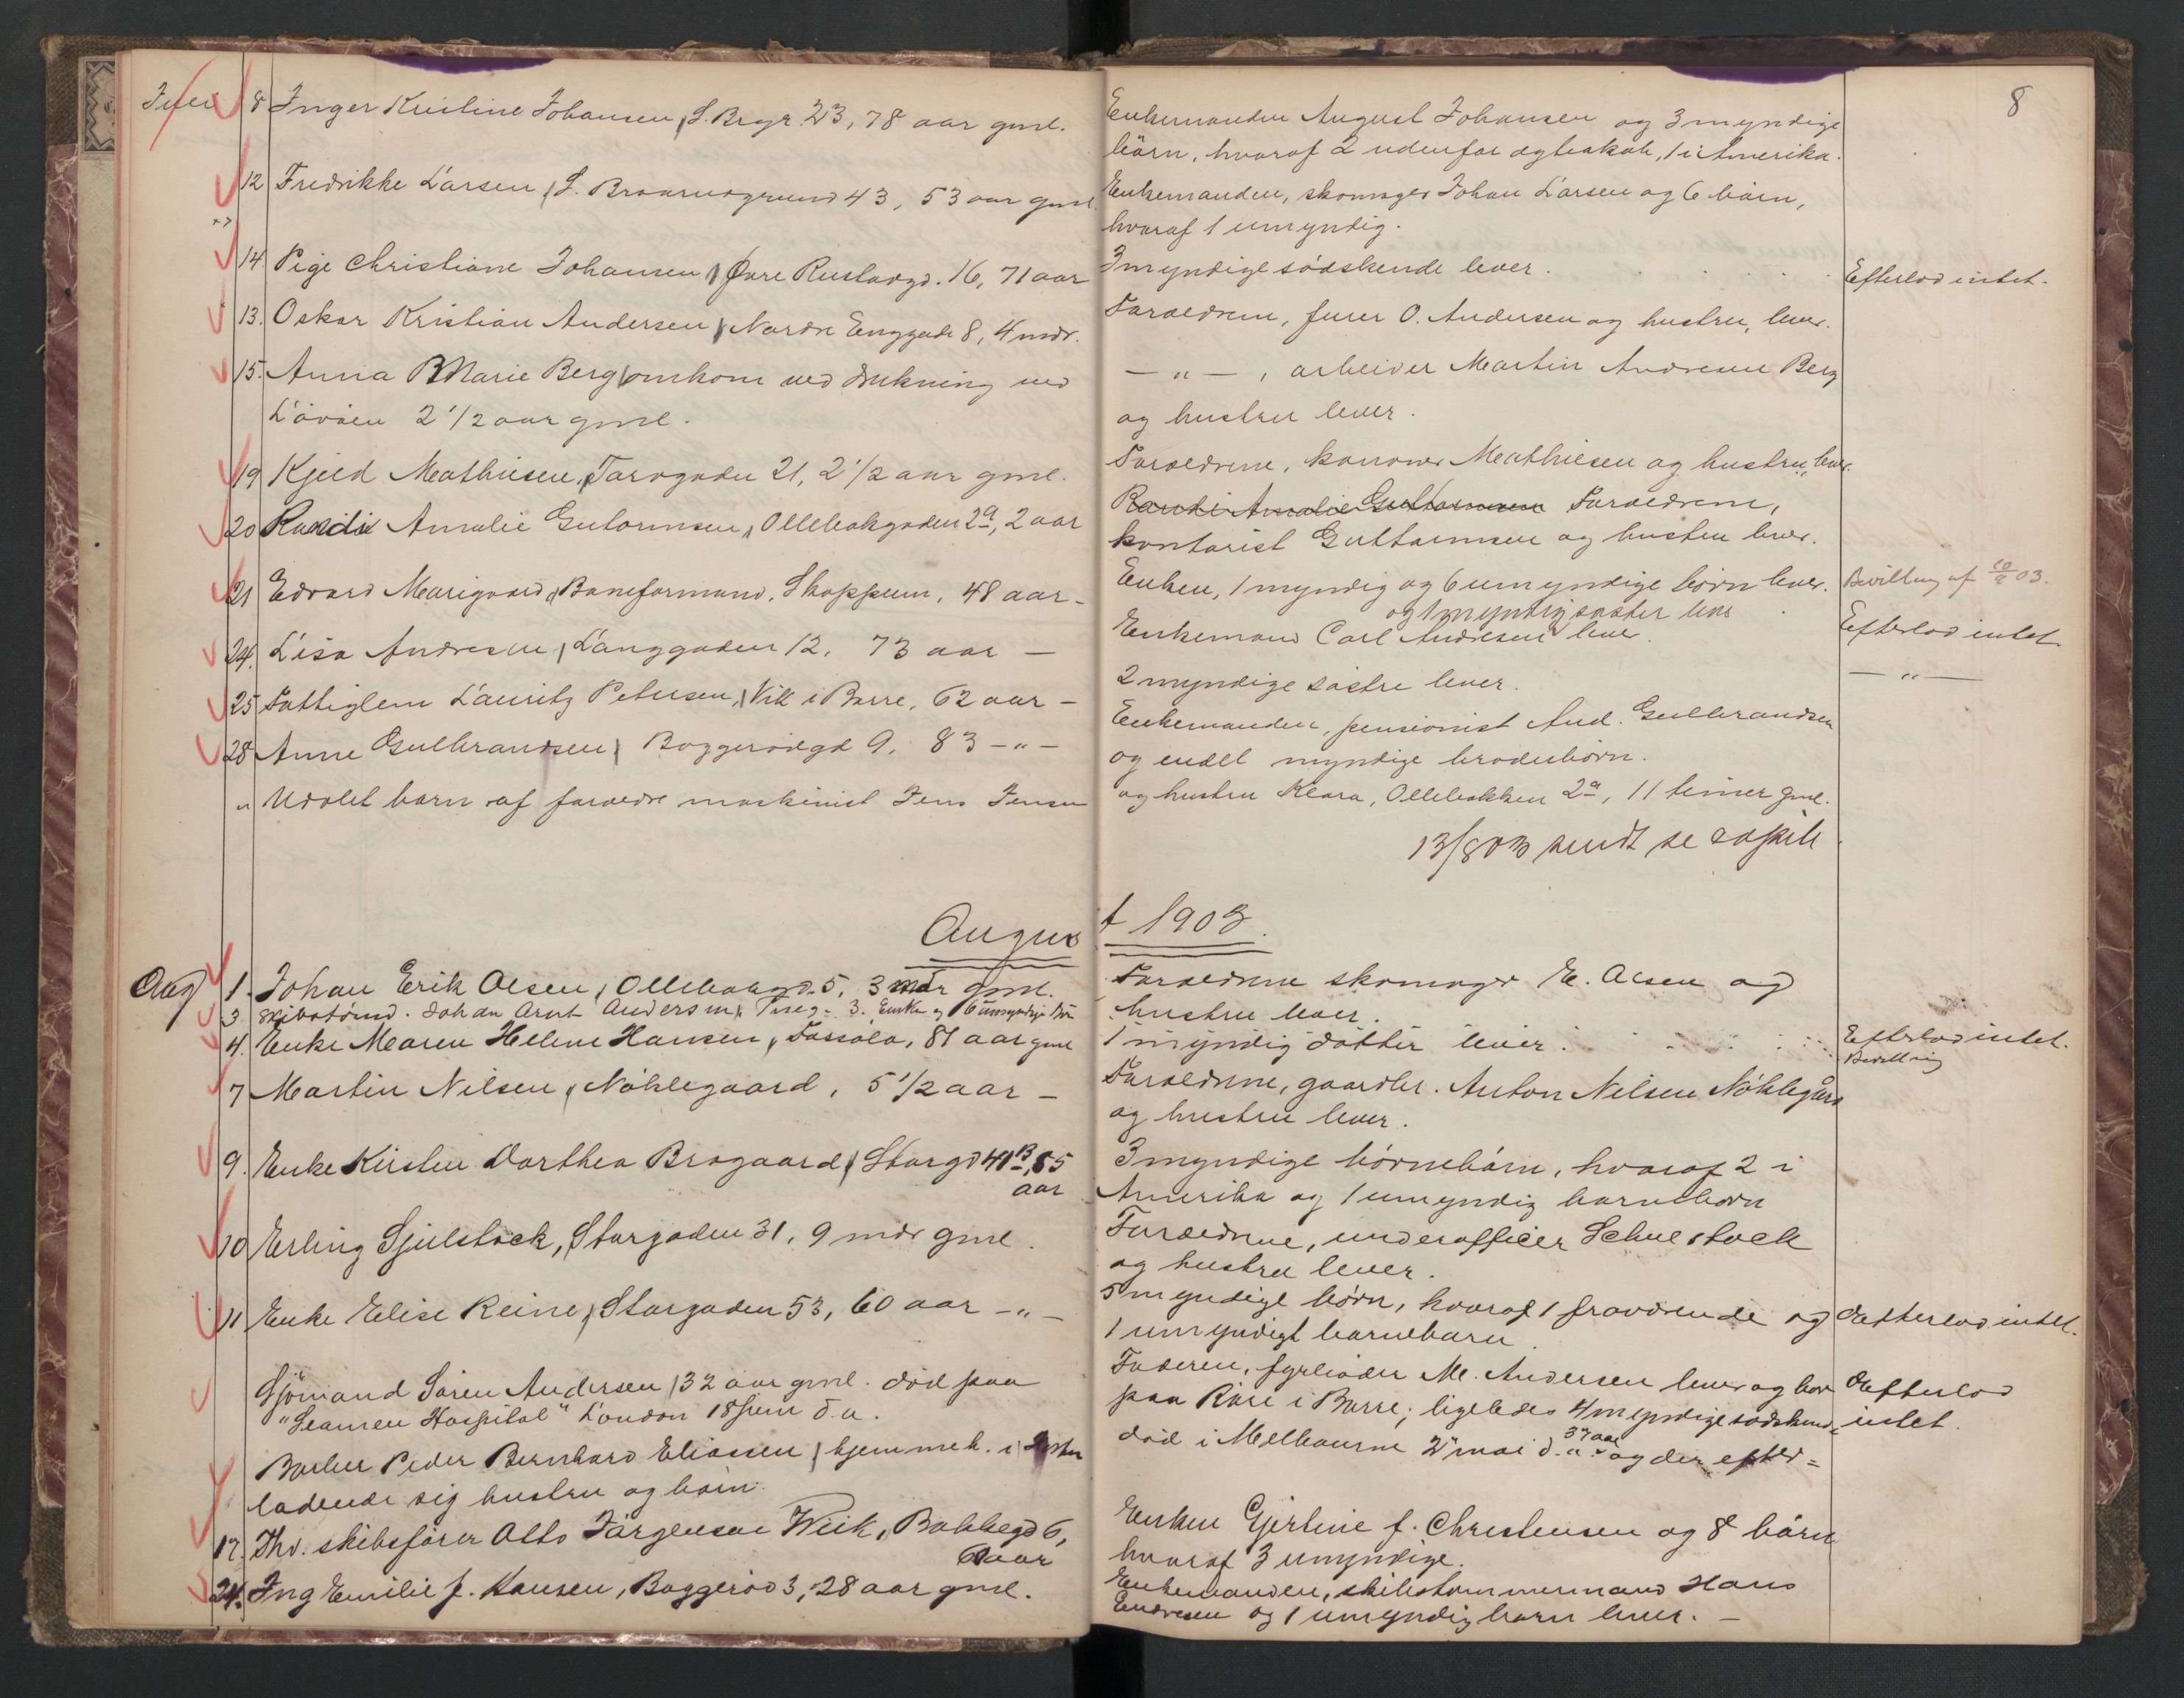 8
Juli 8 Inger Kristine Johansen, S. Brygr. 23, 78 aar gml.
Enkemanden August Johansen og 3 myndige
börn, hvoraf 2 udenfor egteskab, 1 i Amerika.
12 Fredrikke Larsen, S. Braarudgrund 43, 53 aar gml.
Enkemanden, skomager Johan Larsen og 6 börn,
hvoraf 1 umyndig.
14 Pige Christiane Johansen, Øvre Rustadgd. 16, 71 aar
3 myndige södskende lever. Efterlod intet.
13. Oskar Kristian Andersen, Nordre Enggade 8, 4 mdr.
Foraeldrene, furer O. Andersen og hustru, lever.
15. Anna B Marie Berg omkom ved drukning ved
Lövöen 2 1/2 aar gml.
— " — , arbeider Martin Andresen Berg
og hustru lever.
19 Kjeld Mathiesen, Torvgaden 21, 2 1/2 aar gml.
Foraeldrene, kanoner Mathiesen og hustru, lever.
20 Randi Amalie Gutormsen, Ollebakgaden 2a, 2 aar
Randi Amalie Guttormsen Foraeldrene,
kontorist Guttormsen og hustru lever.
21 Edvard Marigaard, Baneformand, Skoppum, 48 aar -
Enken, 1 myndig og 6 umyndige börn lever. Bevilling af 10/9 03.
24. Lisa Andresen, Langgaden 12, 73 aar —
og 1 myndig søster leve
Enkemand Carl Andresen lever. Efterlod intet.
25 Fattiglem Lauritz Petersen, Vik i Borre, 62 aar -
2 myndige søstre lever. — " —
28 Anne Gulbrandsen, Baggerödgd 9, 83 - " -
Enkemanden, pensionist And. Gulbrandsen
og endel myndige broderbörn.
" Udöbt barn af foraeldre maskinist Jens Jensen
og hustru Klara, Ollebakken 2a, 11 timer gml.
13/8 03 sendt
August 1903.
Aug 1. Johan Erik Olsen, Ollebakgd. 5, 3 mdr gml.
Foraeldrene skomager E. Olsen og
hustru lever.
3 Skibstömd. Johan Arnt Andersen, 3. Enke og 6 umyndige börn
4. Enke Maren Helene Hansen, Fossola, 81 aar gml
1 myndig datter lever. Efterlod intet.
Bevilling
7 Martin Nilsen, Nöklegaard, 5 1/2 aar -
Foraeldrene, gaardbr. Anton Nilsen Nöklegård
og hustru lever.
9. Enke Kirsten Dorthea Brogaard, Storgd 41 B, 85
aar
3 myndige börnebörn, hvoraf 2 i
Amerika og 1 umyndig barnebarn
10 Erling Sjulstock, Storgaden 31, 9 mdr gml.
Foraeldrene, underofficer Schulstock
og hustru lever.
11 Enke Elise Reine, Storgaden 53, 60 aar - " -
5 myndige børn, hvoraf 1 fraværende og
1 umyndigt barnebarn. Efterlod intet.
Sjömand Sören Andersen, 32 aar gml. död paa
"Seamen Hospital" London 18 Juni d. a.
Faderen, fyrböder M. Andersen lever og bor
paa Röre i Borre; ligeledes 4 myndige södskende Efterlod
intet.
Peder Bernhard Eliassen, hjemmeh. i Horten
död i Melbourne 2 mai d. a. 37 aar og der efter=
ladende sig hustru og börn.
17. Fhv. skibsförer Otto Jörgensen Wiik, Bakkegd 6,
aar
Enken Gjertine f. Christensen og 8 börn
hvoraf 3 umyndige.
24. Ing Emilie f. Hansen, Baggeröd 3, 28 aar gml.
Enkemanden, skibstømmermand Hans
Endresen og 1 umyndig barn lever. —